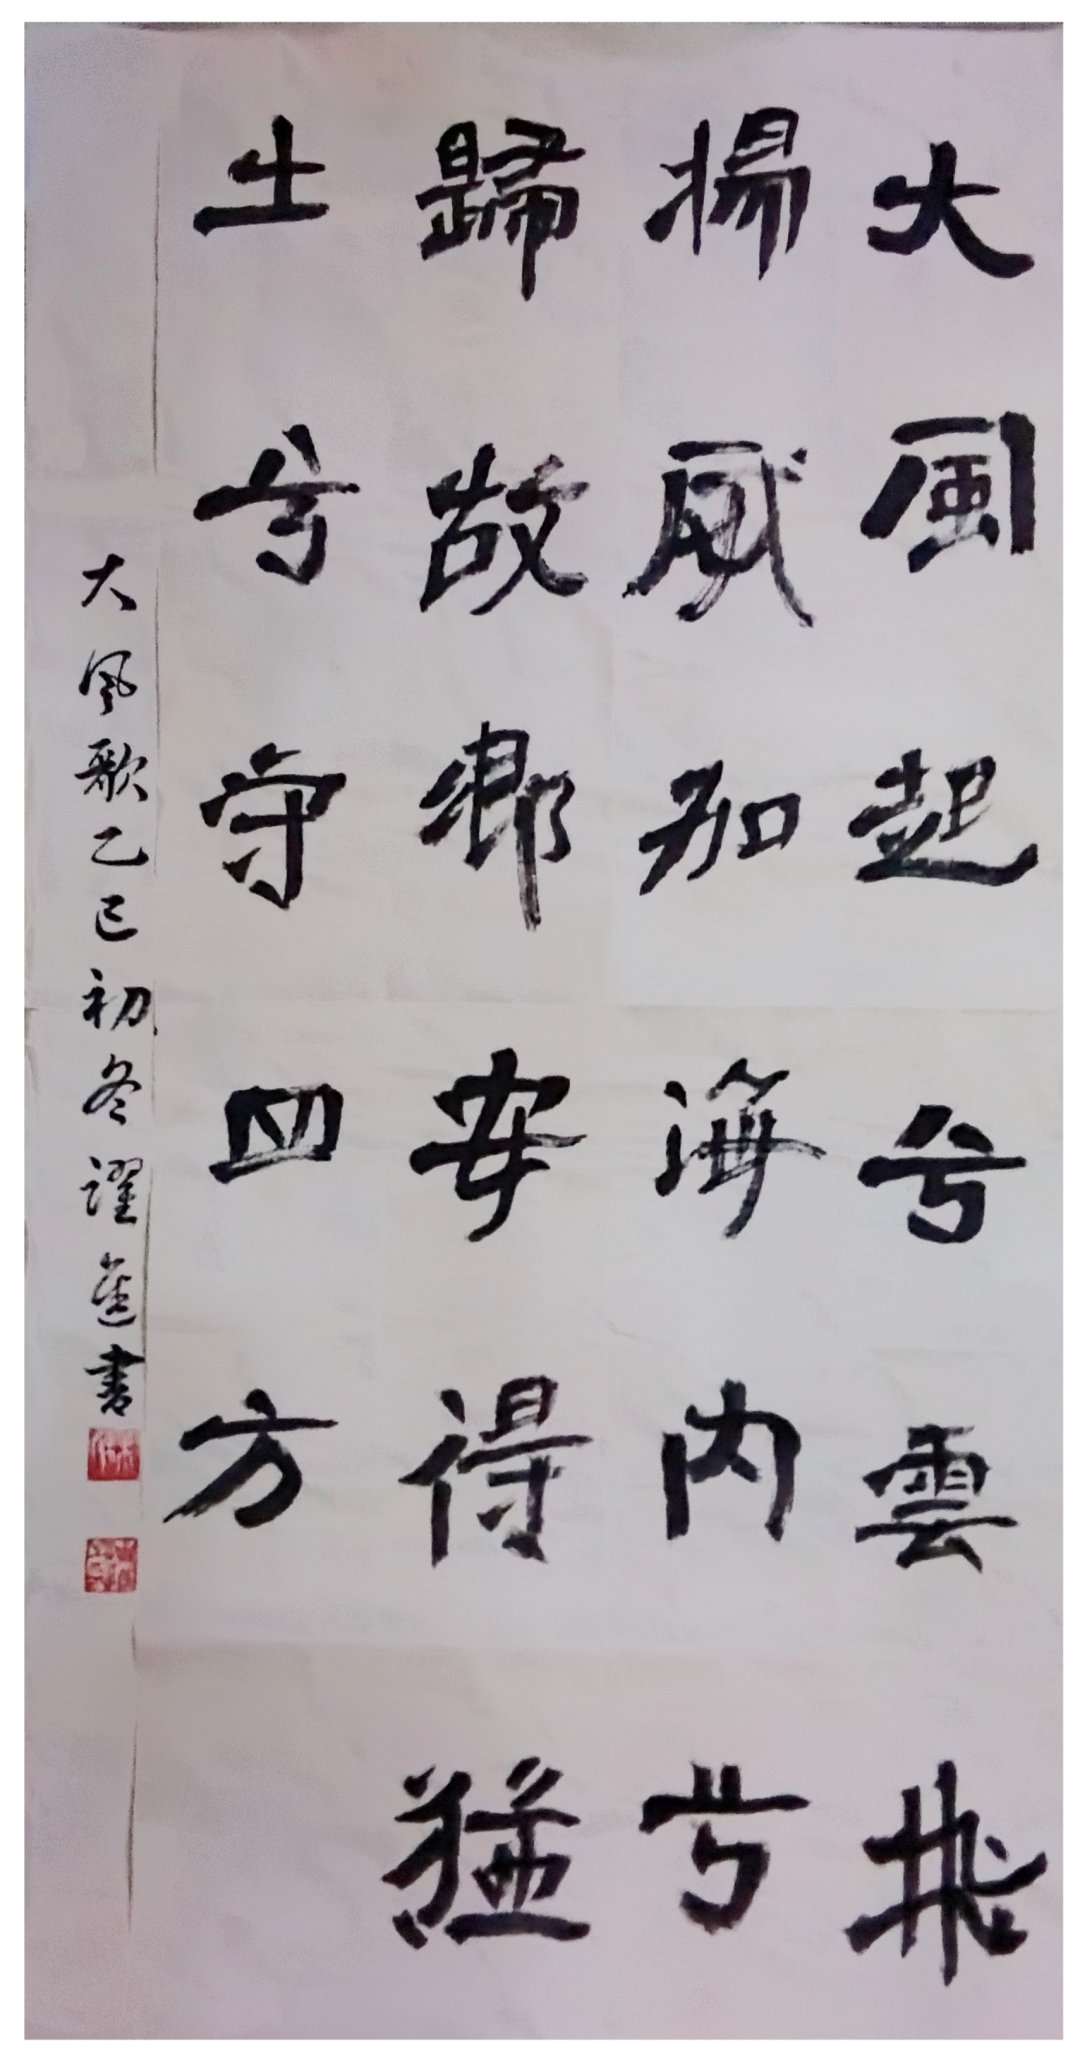 大風起兮雲飛
揚威加海內兮
歸故鄉安得猛
士兮守四方
大风歌乙巳初冬躍進書